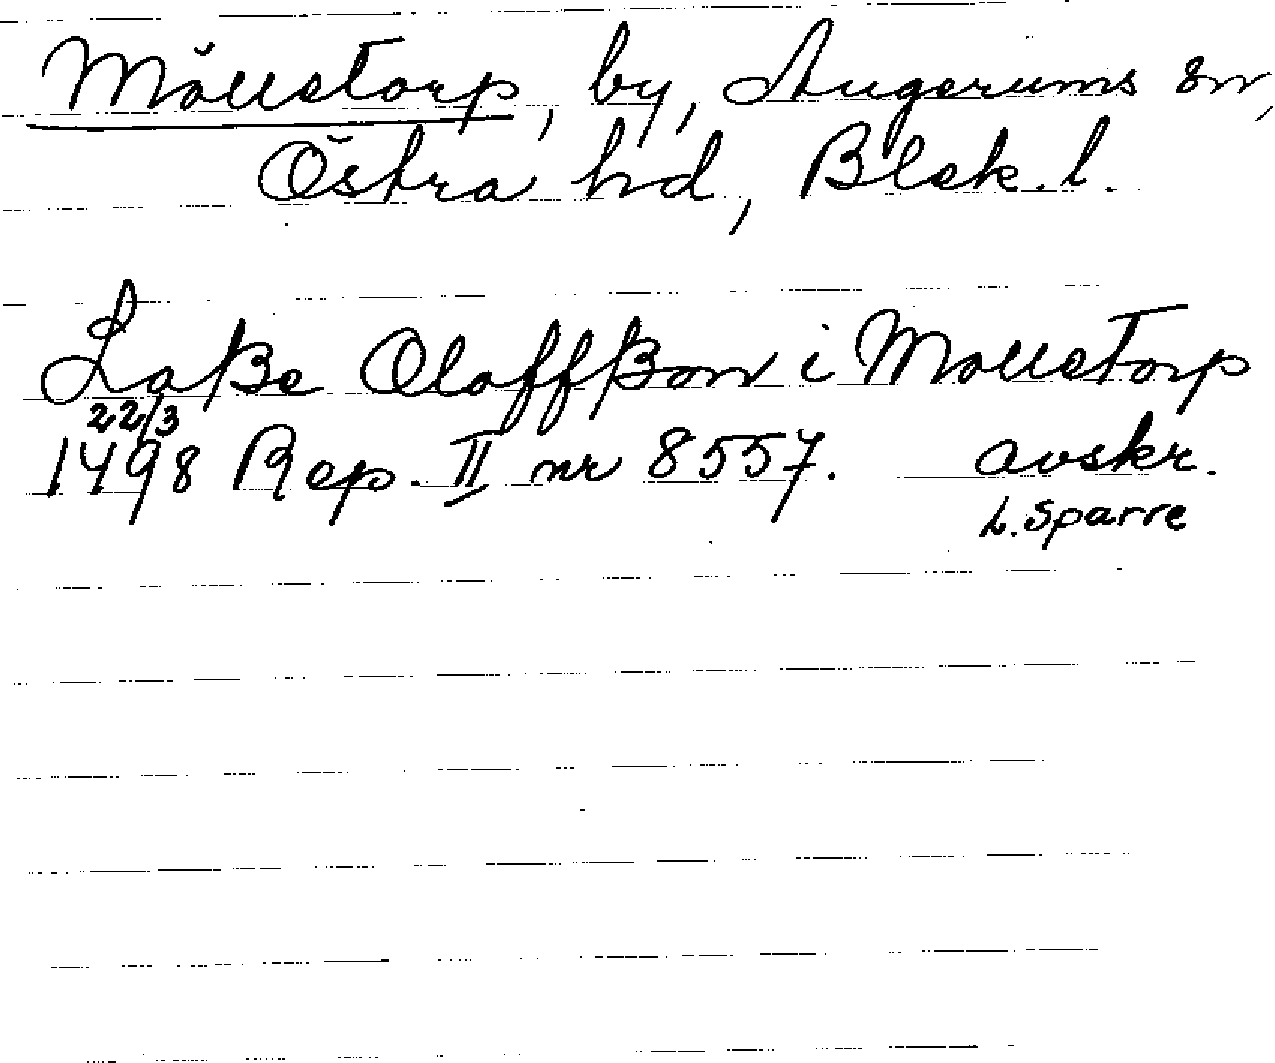 Möllstorp, by, Augerums sn,
Östra hd, Blek. l.
Laße Olaffßon i Mollstorp
22/3
1498 Rep. II nr 8557. avskr.
L. Sparre